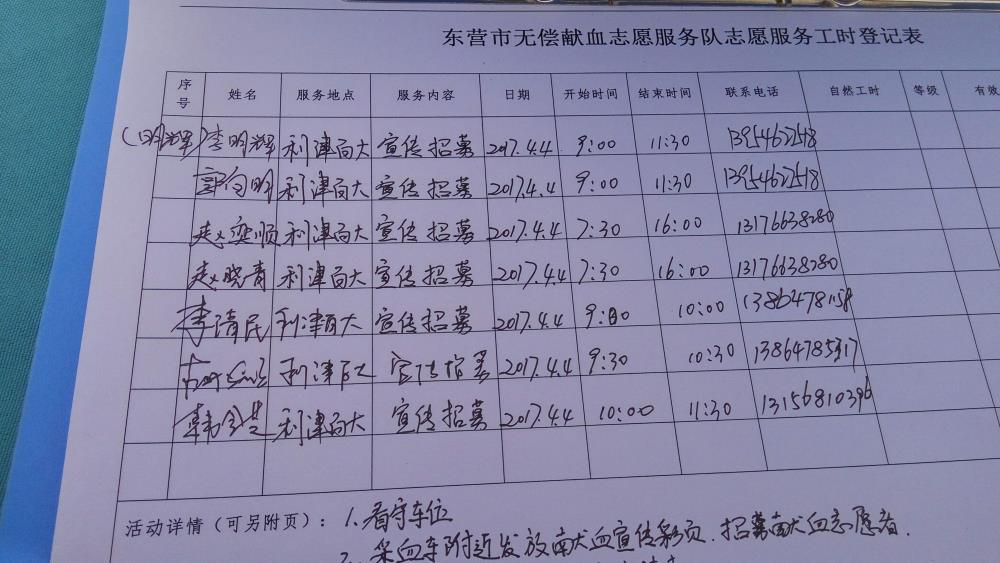 东营市无偿献血志愿服务队志愿服务工时登记表
序号 姓名 服务地点 服务内容 日期 开始时间 结束时间 联系电话 自然工时 等级 有效
(明辉) 李明辉 利津百大 宣传招募 2017.4.4 9:00 11:30 13954622518
郭向明 利津百大 宣传招募 2017.4.4 9:00 11:30 13954622518
赵奕顺 利津百大 宣传招募 2017.4.4 7:30 16:00 13176638280
赵晓青 利津百大 宣传招募 2017.4.4 7:30 16:00 13176638280
李清民 利津百大 宣传招募 2017.4.4 9:00 10:00
利津百大 宣传招募 2017.4.4 9:30 10:30 13864785317
韩金芝 利津百大 宣传招募 2017.4.4 10:00 11:30 13156810396
活动详情（可另附页）： 1.看守车位
2.采血车附近发放献血宣传彩页.招募献血志愿者.